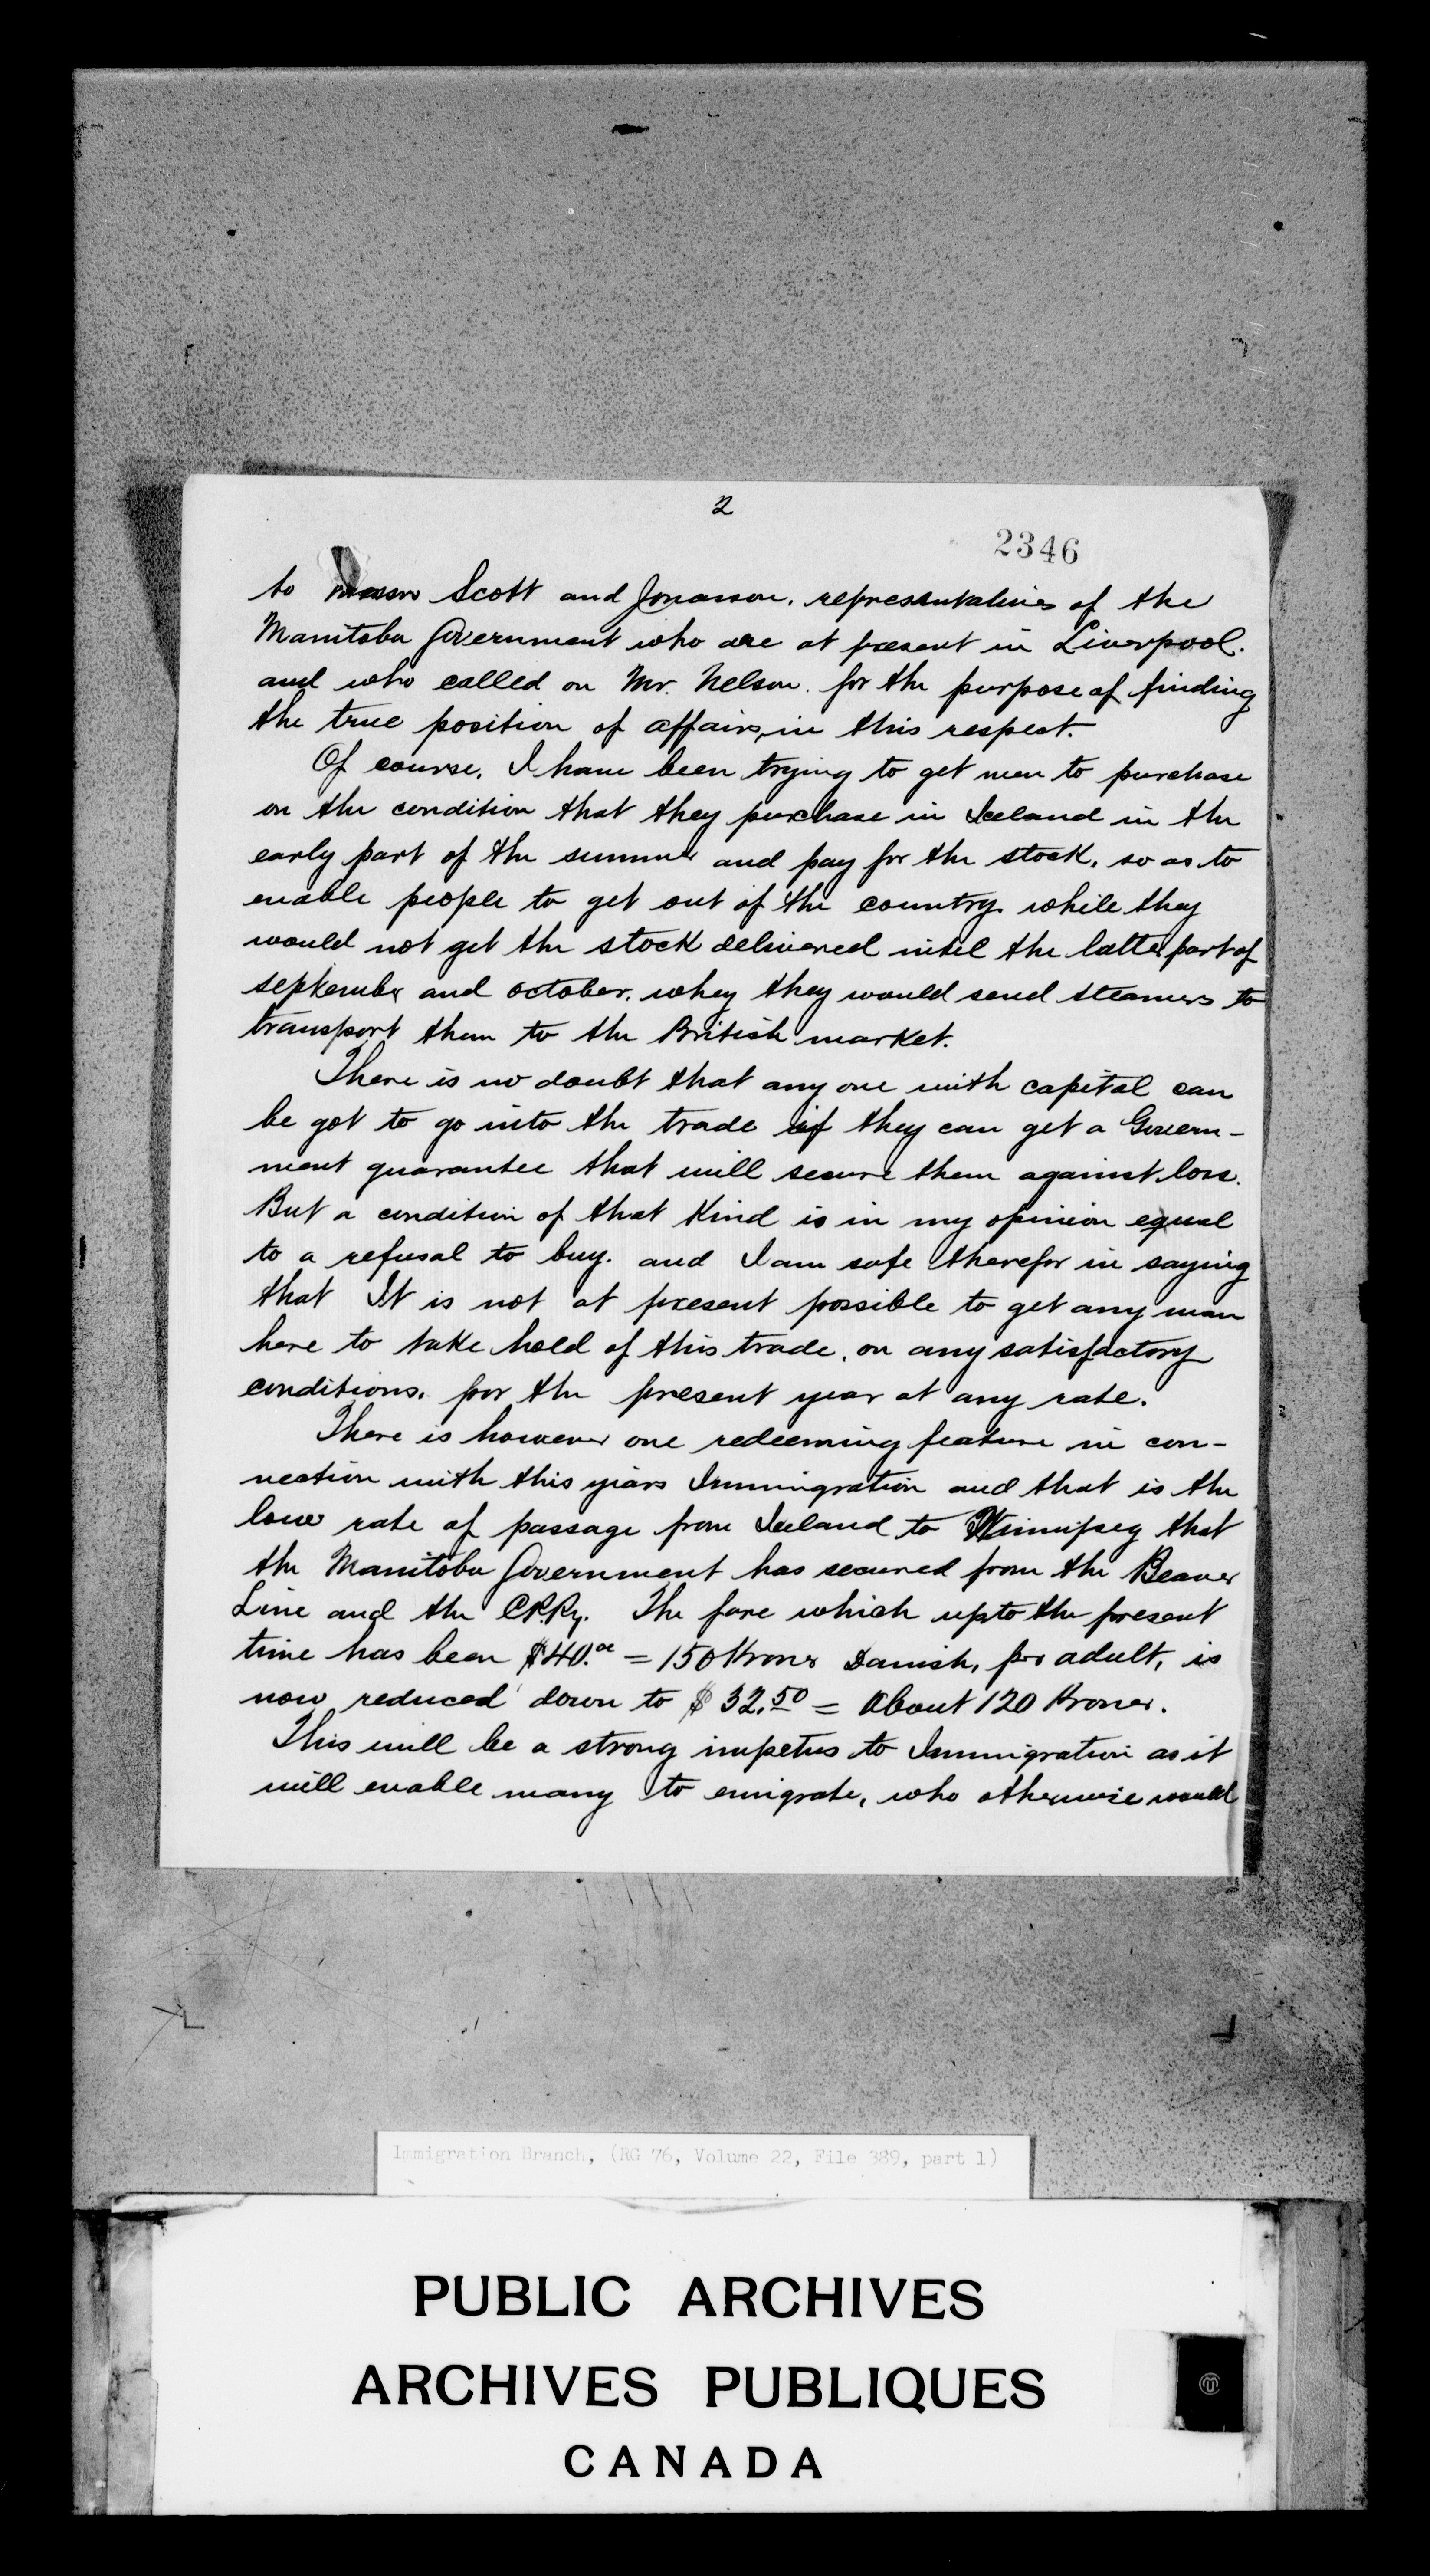 2
2346
to Messrs Scott and Jonasson, representatives of the
Manitoba Government who are at present in Liverpool.
and who called on Mr. Nelson. for the purpose of finding
the true position of affairs, in this respect.
Of course, I have been trying to get men to purchase
on the condition that they purchase in Iceland in the
early part of the summer and pay for the stock, so as to
enable people to get out of the country while they
would not get the stock delivered intil the latter part of
september and october, whey they would send steamers to
transport them to the British market.
There is no doubt that any one with capital can
be got to go into the trade if they can get a Govern-
ment guarantee that will secure them against loss.
But a condition of that Kind is in my opinion equal
to a refusal to buy. and I am safe therefor in saying
that It is not at present possible to get any man
here to take hold of this trade, on any satisfactory
conditions. for the present year at any rate.
There is however one redeeming feature in con-
nection with this years Immigration and that is the
low rate of passage from Iceland to Winnipeg that
the Manitoba Government has secured from the Beaver
Line and the C.P.Ry. The fare which upto the present
time has been $40.00 = 150 Kroner Danish, per adult, is
now reduced down to $32.50 = About 120 Kroner.
This will be a strong impetus to Immigration as it
will enable many to emigrate, who otherwise would
Immigration Branch, (RG 76, Volume 22, File 389, part 1)
PUBLIC ARCHIVES
ARCHIVES PUBLIQUES
CANADA